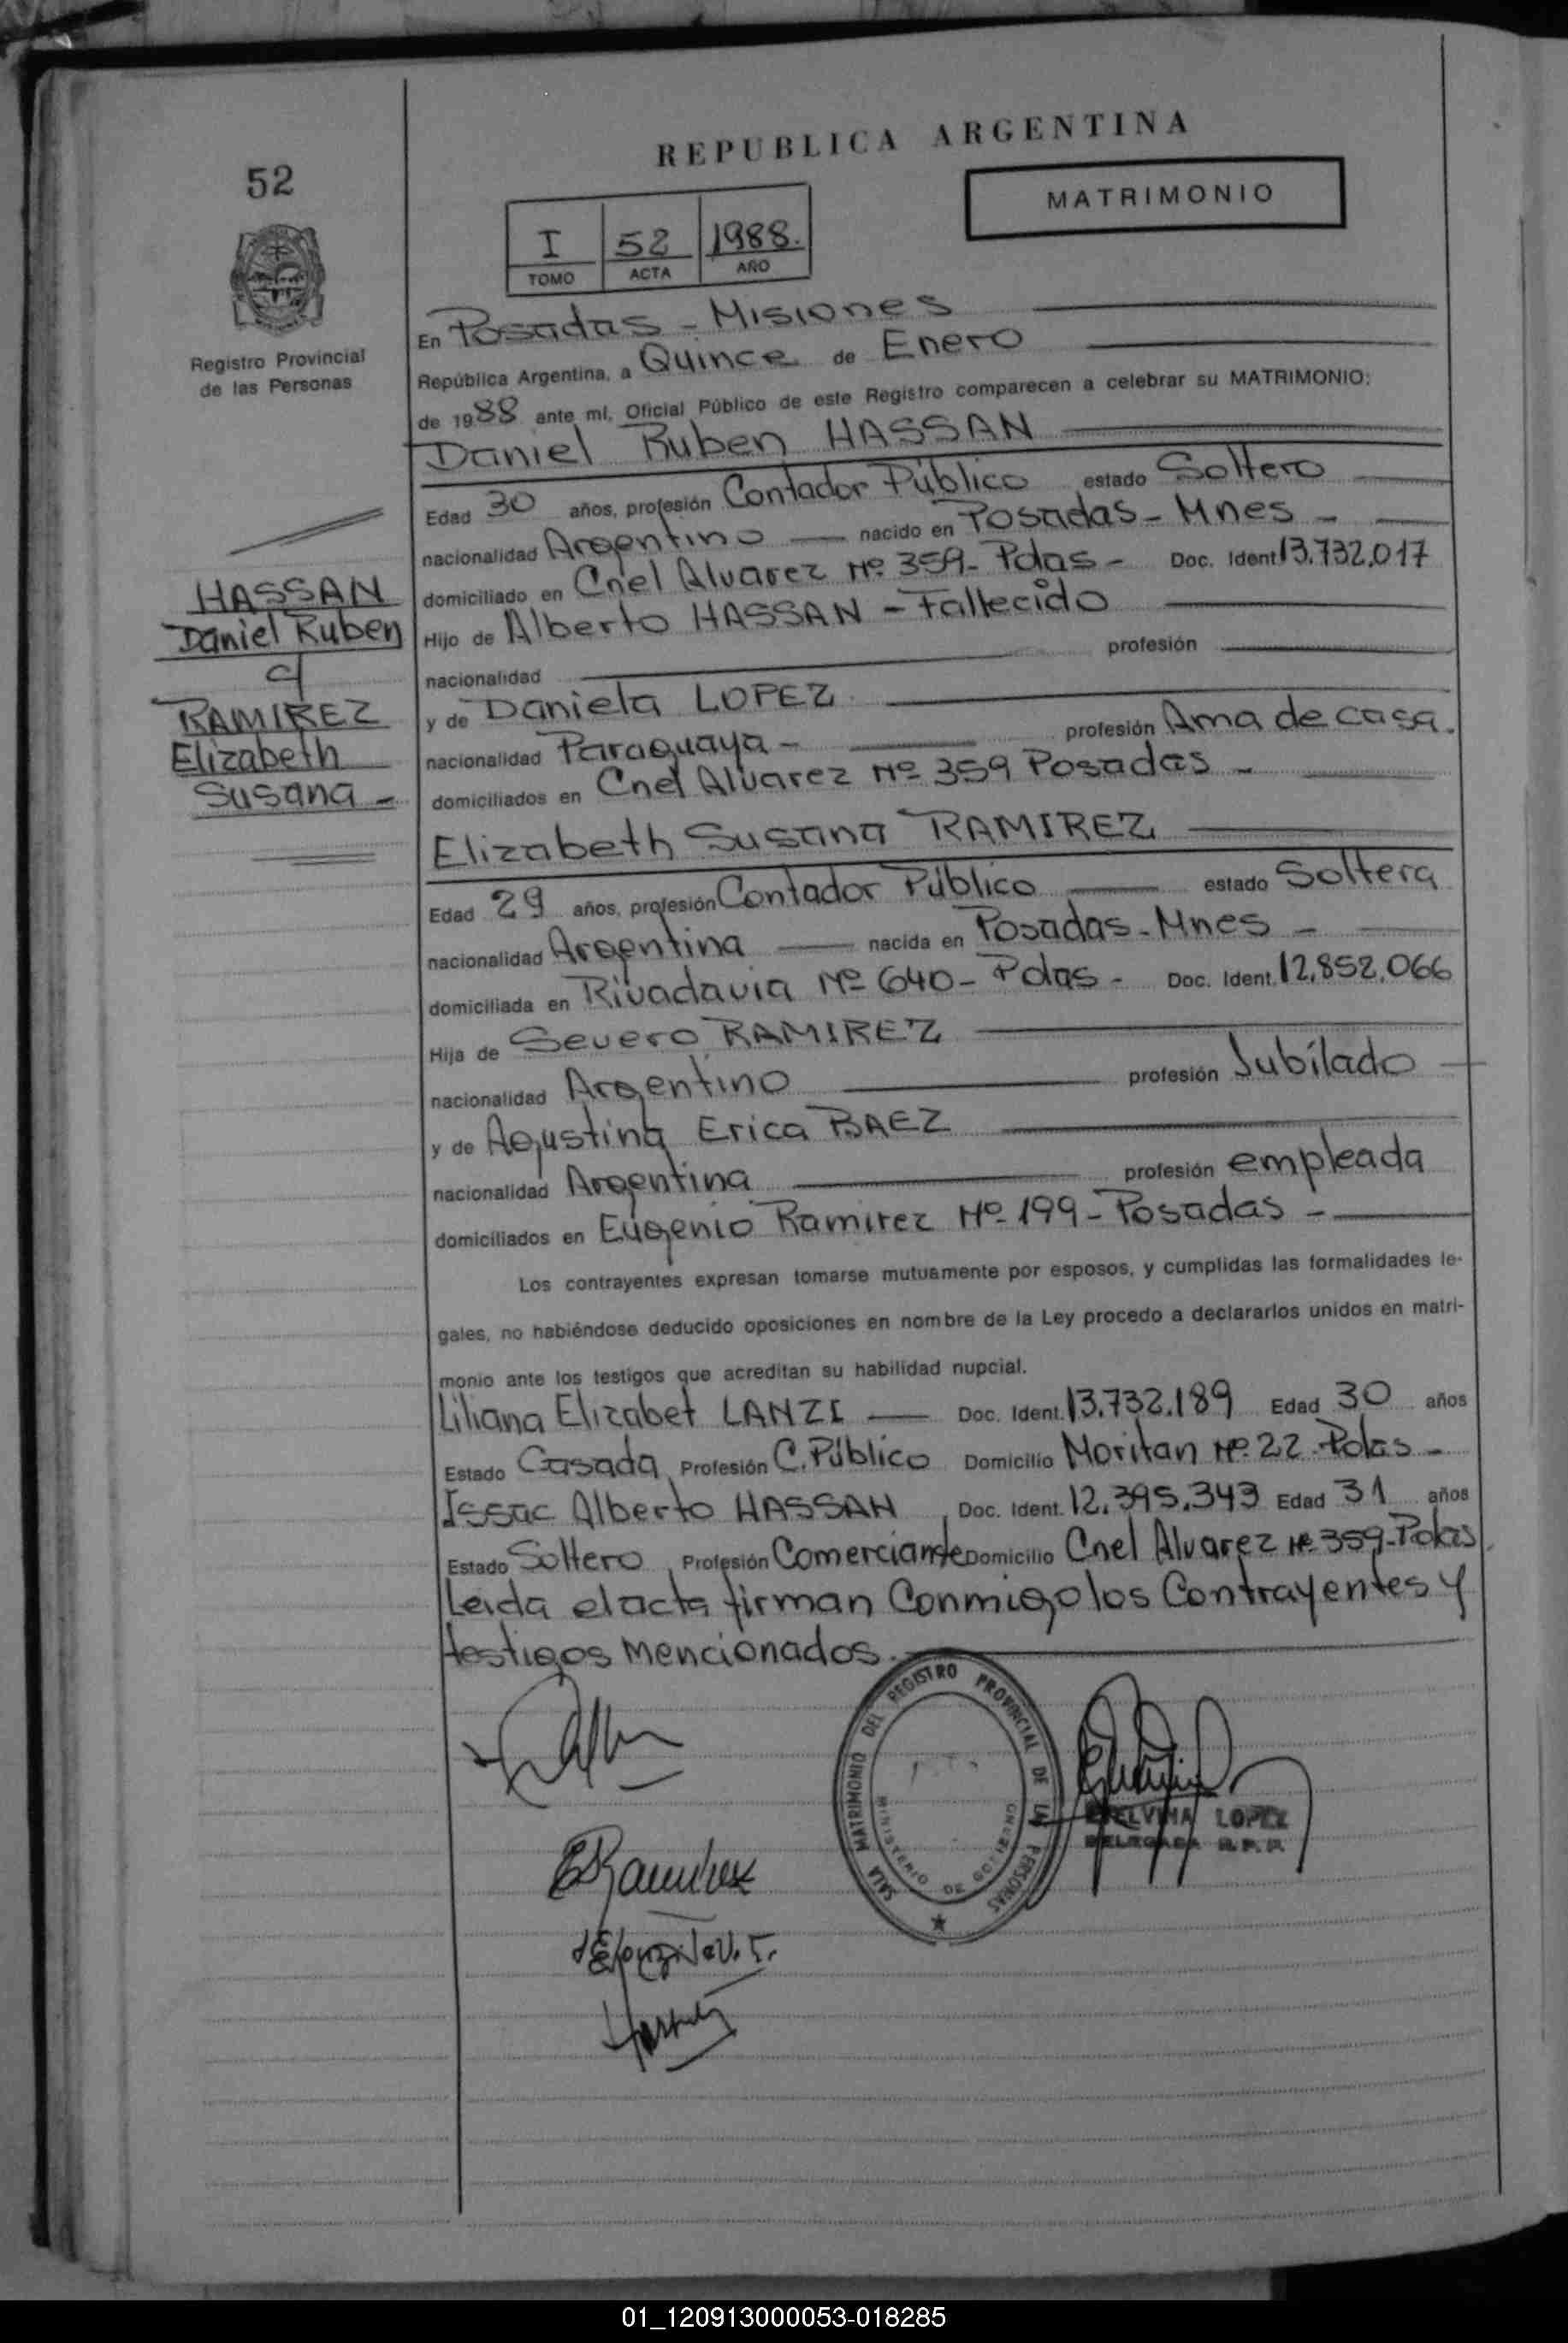 REPUBLICA ARGENTINA
52
MATRIMONIO
I 52 1988.
TOMO ACTA AÑO
Registro Provincial
de las Personas
En Posadas - Misiones
República Argentina, a Quince de Enero
de 1988 ante mí, Oficial Público de este Registro comparecen a celebrar su MATRIMONIO:
Daniel Ruben HASSAN
Edad 30 años, profesión Contador Público estado Soltero
nacionalidad Argentino nacido en Posadas - Mnes -
domiciliado en Cnel Alvarez Nº 359 - Pdas - Doc. Ident. 13.732.017
Hijo de Alberto HASSAN - Fallecido
nacionalidad profesión
y de Daniela LOPEZ
nacionalidad Paraguaya - profesión Ama de casa.
domiciliados en Cnel Alvarez Nº 359 Posadas -
HASSAN
Daniel Ruben
c/
RAMIREZ
Elizabeth
Susana -
Elizabeth Susana RAMIREZ
Edad 29 años, profesión Contador Público estado Soltera
nacionalidad Argentina nacida en Posadas - Mnes -
domiciliada en Rivadavia Nº 640 - Pdas - Doc. Ident. 12.852.066
Hija de Severo RAMIREZ
nacionalidad Argentino profesión Jubilado
y de Agustina Erica BAEZ
nacionalidad Argentina profesión empleada
domiciliados en Eugenio Ramirez Nº 199 - Posadas -
Los contrayentes expresan tomarse mutuamente por esposos, y cumplidas las formalidades le-
gales, no habiéndose deducido oposiciones en nombre de la Ley procedo a declararlos unidos en matri-
monio ante los testigos que acreditan su habilidad nupcial.
Liliana Elizabet LANZI Doc. Ident. 13.732.189 Edad 30 años
Estado Casada, Profesión C. Público Domicilio Moritan Nº 22 - Pdas -
Issac Alberto HASSAN, Doc. Ident. 12.395.343 Edad 31 años
Estado Soltero, Profesión Comerciante Domicilio Cnel Alvarez Nº 359 - Pdas.
Leida el acta firman Conmigo los Contrayentes y
testigos Mencionados.
SALA MATRIMONIO DEL REGISTRO PROVINCIAL DE LAS PERSONAS
MINISTERIO DE GOBIERNO
LOPEZ
DELEGADA R.P.P.
01_120913000053-018285